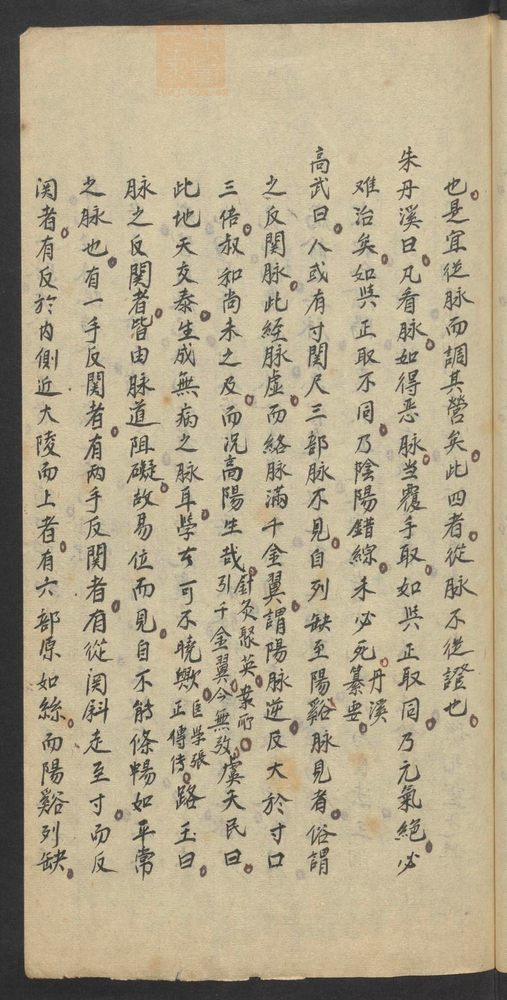 也是宜從脉而調其營矣此四者從脉不從證也
朱丹溪曰凡看脉如得惡脉當覆手取如與正取同乃元氣絕必
难治矣如與正取不同乃陰陽錯綜未必死丹溪纂要
高武曰人或有寸関尺三部脉不見自列缺至陽谿脉見者俗謂
之反関脉此經脉虛而絡脉滿千金翼謂陽脉逆反大於寸口
三倍叔和尚未之及而况高陽生哉針灸聚英業所引千金翼今無攷虞天民曰
此地天交泰生成無病之脉耳學者可不曉歟医学正傳張路玉曰
脉之反関者皆由脉道阻礙故易位而見自不能條暢如平常
之脉也有一手反関者有兩手反関者有從関斜走至寸而反
関者有反於内側近大陵而上者有六部原如絲而陽谿列缺